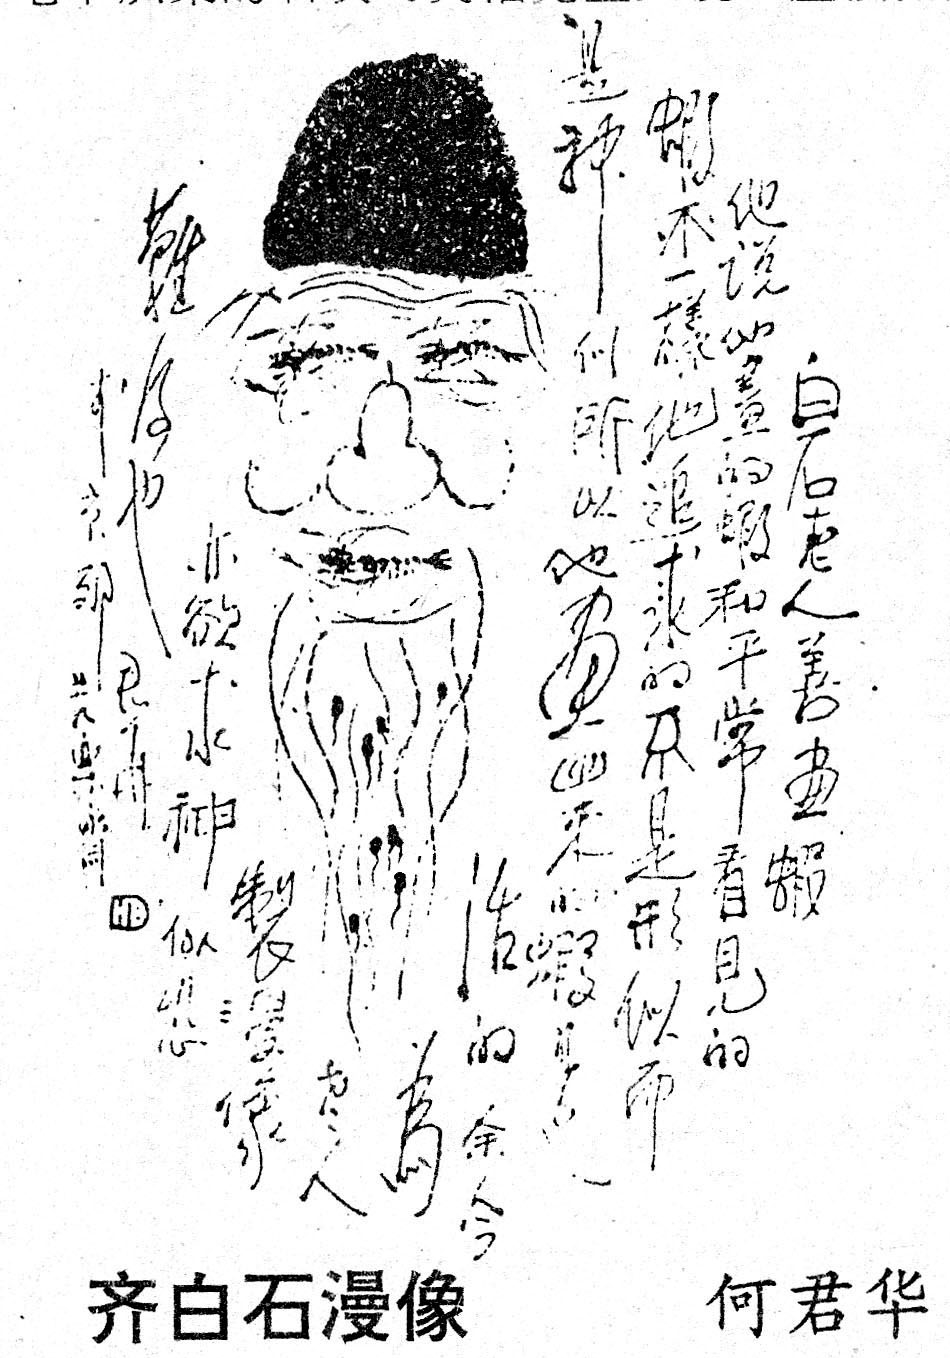 白石老人善画蝦
他说他畫的蝦和平常看見的
蝦不一樣他追求的不是形似而
是神似所以他画出来的蝦是
活的余今
為
老人
製漫像
亦欲求神似恐
難得也
君華
齐白石漫像
何君华